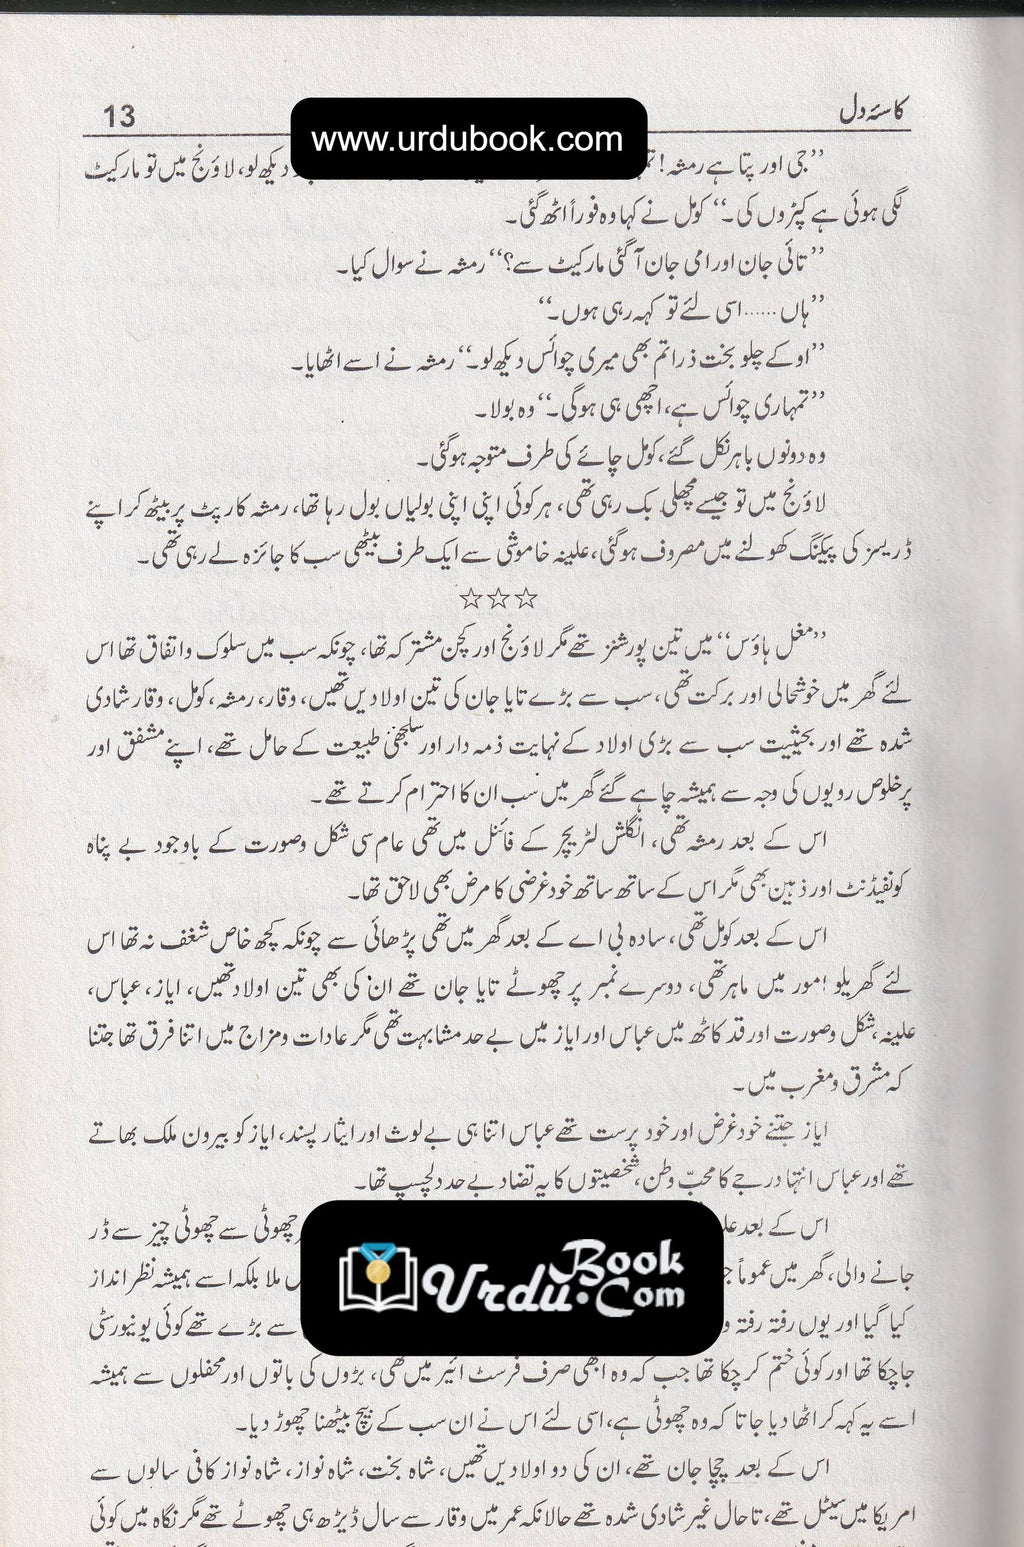 کاسئہ دل
13
www.urdubook.com
’’جی اور پتا ہے رمشہ! دیکھ لو، لاؤنج میں تو مارکیٹ
لگی ہوئی ہے کپڑوں کی۔‘‘ کومل نے کہا وہ فوراً اٹھ گئی۔
’’تائی جان اور امی جان آ گئی مارکیٹ سے؟‘‘ رمشہ نے سوال کیا۔
’’ہاں......اسی لئے تو کہہ رہی ہوں۔‘‘
’’اوکے چلو بخت ذرا تم بھی میری چوائس دیکھ لو۔‘‘ رمشہ نے اسے اٹھایا۔
’’تمہاری چوائس ہے، اچھی ہی ہوگی۔‘‘ وہ بولا۔
وہ دونوں باہر نکل گئے، کومل چائے کی طرف متوجہ ہوگئی۔
لاؤنج میں تو جیسے مچھلی بک رہی تھی، ہر کوئی اپنی اپنی بولیاں بول رہا تھا، رمشہ کارپٹ پر بیٹھ کر اپنے
ڈریسز کی پیکنگ کھولنے میں مصروف ہوگئی، علینہ خاموشی سے ایک طرف بیٹھی سب کا جائزہ لے رہی تھی۔
☆☆☆
’’مغل ہاؤس‘‘ میں تین پورشنز تھے مگر لاؤنج اور کچن مشترکہ تھا، چونکہ سب میں سلوک و اتفاق تھا اس
لئے گھر میں خوشحالی اور برکت تھی، سب سے بڑے تایا جان کی تین اولادیں تھیں، وقار، رمشہ، کومل، وقار شادی
شدہ تھے اور بحیثیت سب سے بڑی اولاد کے نہایت ذمہ دار اور سلجھی طبیعت کے حامل تھے، اپنے مشفق اور
پرخلوص رویوں کی وجہ سے ہمیشہ چاہے گئے گھر میں سب ان کا احترام کرتے تھے۔
اس کے بعد رمشہ تھی، انگلش لٹریچر کے فائنل میں تھی عام سی شکل وصورت کے باوجود بے پناہ
کونفیڈنٹ اور ذہین بھی مگر اس کے ساتھ ساتھ خودغرضی کا مرض بھی لاحق تھا۔
اس کے بعد کومل تھی، سادہ بی اے کے بعد گھر میں تھی پڑھائی سے چونکہ کچھ خاص شغف نہ تھا اس
لئے گھریلو امور میں ماہر تھی، دوسرے نمبر پر چھوٹے تایا جان تھے ان کی بھی تین اولاد تھیں، ایاز، عباس،
علینہ، شکل وصورت اور قد کاٹھ میں عباس اور ایاز میں بے حد مشابہت تھی مگر عادات ومزاج میں اتنا فرق تھا جتنا
کہ مشرق ومغرب میں۔
ایاز جتنے خودغرض اور خود پرست تھے عباس اتنا ہی بے لوث اور ایثار پسند، ایاز کو بیرون ملک بھاتے
تھے اور عباس انتہا درجے کا محبّ وطن، شخصیتوں کا یہ تضاد بے حد دلچسپ تھا۔
اس کے بعد چھوٹی سے چھوٹی چیز سے ڈر
جانے والی، گھر میں عموماً ملا بلکہ اسے ہمیشہ نظر انداز
کیا گیا اور یوں رفتہ رفتہ سے بڑے تھے کوئی یونیورسٹی
UrduBook.Com
جا چکا تھا اور کوئی ختم کر چکا تھا جب کہ وہ ابھی صرف فرسٹ ائیر میں تھی، بڑوں کی باتوں اور محفلوں سے ہمیشہ
اسے یہ کہہ کر اٹھا دیا جاتا کہ وہ چھوٹی ہے، اسی لئے اس نے ان سب کے بیچ بیٹھنا چھوڑ دیا۔
اس کے بعد چچا جان تھے، ان کی دو اولادیں تھیں، شاہ بخت، شاہ نواز، شاہ نواز کافی سالوں سے
امریکا میں سیٹل تھے، تاحال غیر شادی شدہ تھے حالانکہ عمر میں وقار سے سال ڈیڑھ ہی چھوٹے تھے مگر نگاہ میں کوئی